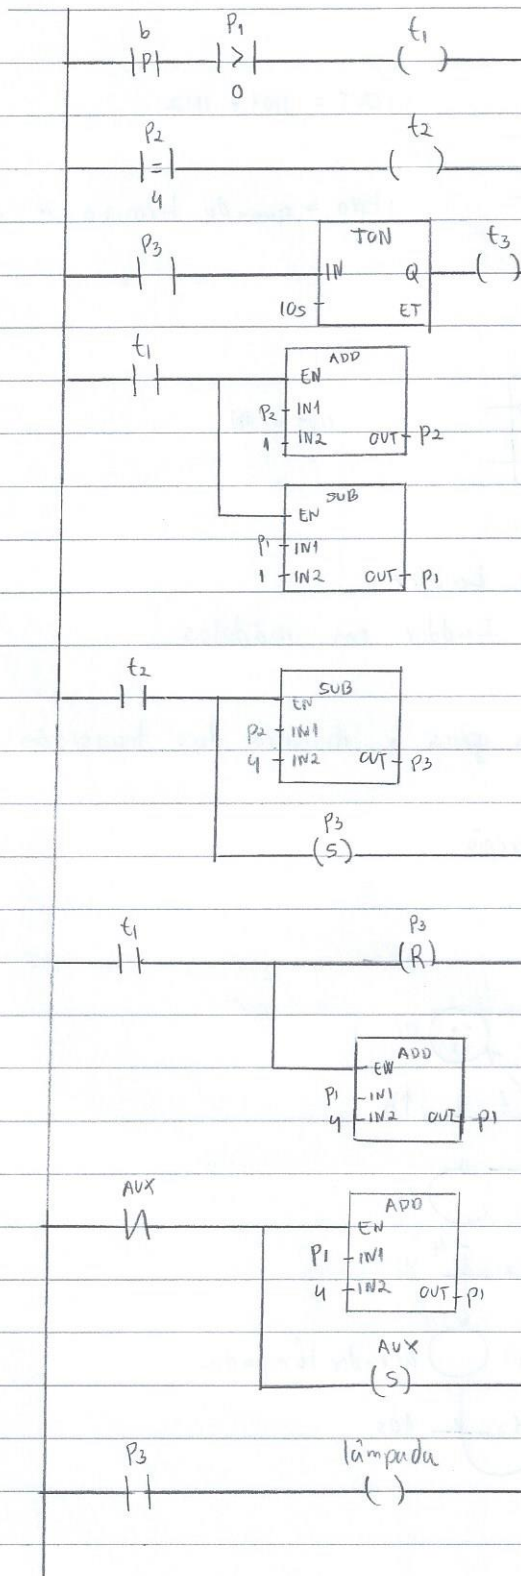 b P1 t1
P >
0
P2 t2
=
4
P3 TON t3
IN Q
10s ET
t1 ADD
EN
P2 IN1
1 IN2 OUT P2
SUB
EN
P1 IN1
1 IN2 OUT P1
t2 SUB
EN
P2 IN1
4 IN2 OUT P3
P3
S
t1 P3
R
ADD
EN
P1 IN1
4 IN2 OUT P1
AUX ADD
EN
P1 IN1
4 IN2 OUT P1
AUX
S
P3 lâmpada